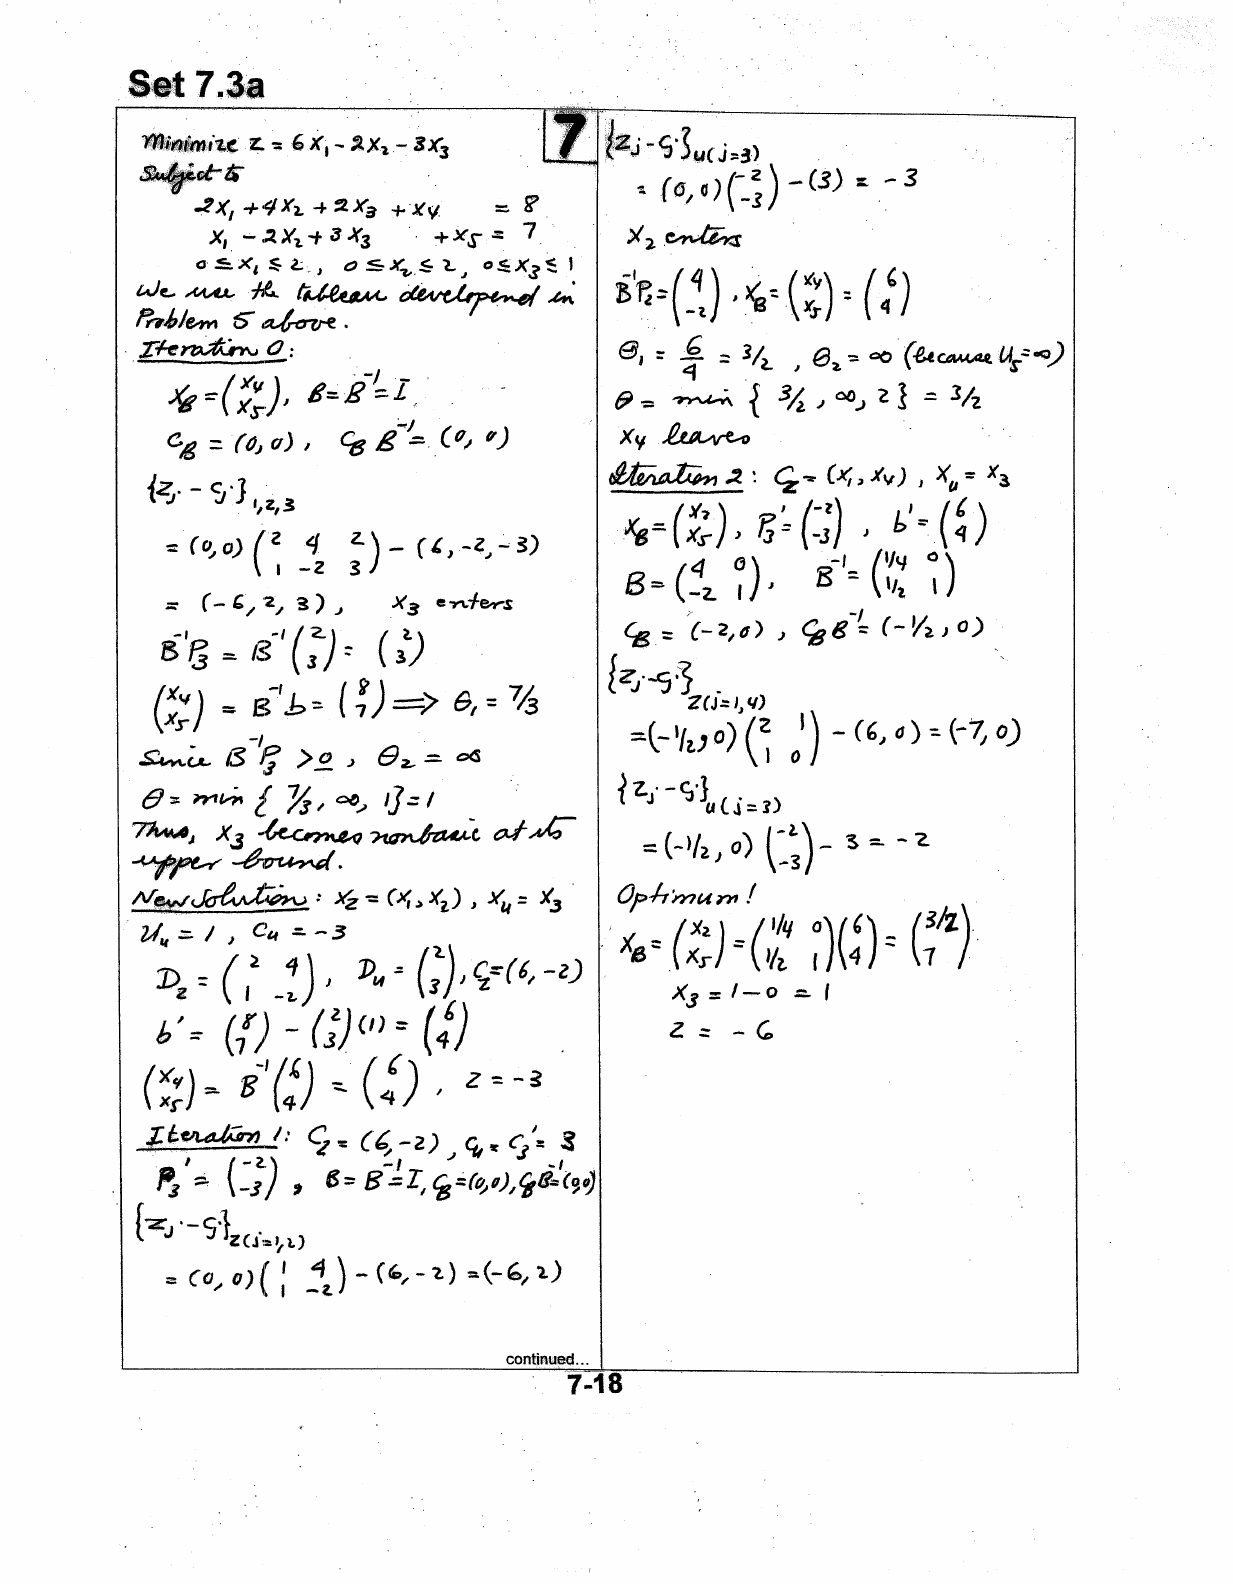 Set 7.3a
7
Minimize z = 6x₁ - 2x₂ - 3x₃
Subject to
2x₁ + 4x₂ + 2x₃ + x₄ = 8
x₁ - 2x₂ + 3x₃ + x₅ = 7
0 ≤ x₁ ≤ 2, 0 ≤ x₂ ≤ 2, 0 ≤ x₃ ≤ 1
We use the tableau developend in
Problem 5 above.
Iteration 0:
X_B = (x₄ / x₅), B = B⁻¹ = I
C_B = (0, 0), C_B B⁻¹ = (0, 0)
{z_j - c_j}₁,₂,₃
= (0, 0) (2 4 2 / 1 -2 3) - (6, -2, -3)
= (-6, 2, 3), x₃ enters
B⁻¹P₃ = B⁻¹ (2 / 3) = (2 / 3)
(x₄ / x₅) = B⁻¹b = (8 / 7) ⟹ θ₁ = 7/3
Since B⁻¹P₃ > 0, θ₂ = ∞
θ = min { 7/3, ∞, 1} = 1
Thus, x₃ becomes nonbasic at its
upper bound.
New Solution: X_z = (x₁, x₂), X_u = x₃
U_u = 1, C_u = -3
D_z = (2 4 / 1 -2), D_u = (2 / 3), C_z = (6, -2)
b' = (8 / 7) - (2 / 3)(1) = (6 / 4)
(x₄ / x₅) = B⁻¹ (6 / 4) = (6 / 4), z = -3
Iteration 1: C_z = (6, -2), C_u = C₃' = 3
P₃' = (-2 / -3), B = B⁻¹ = I, C_B = (0,0), C_B B⁻¹ = (0,0)
{z_j - c_j}_z(j=1,2)
= (0, 0) (1 4 / 1 -2) - (6, -2) = (-6, 2)
continued...
{z_j - c_j}_u(j=3)
= (0, 0) (-2 / -3) - (3) = -3
x₂ enters
B⁻¹P₂ = (4 / -2), X_B = (x₄ / x₅) = (6 / 4)
θ₁ = 6/4 = 3/2, θ₂ = ∞ (because U₅ = ∞)
θ = min { 3/2, ∞, 2} = 3/2
x₄ leaves
Iteration 2: C_z = (x₁, x₄), X_u = x₃
X_B = (x₂ / x₅), P₃' = (-2 / -3), b' = (6 / 4)
B = (4 0 / -2 1), B⁻¹ = (1/4 0 / 1/2 1)
C_B = (-2, 0), C_B B⁻¹ = (-1/2, 0)
{z_j - c_j}_z(j=1,4)
= (-1/2, 0) (2 1 / 1 0) - (6, 0) = (-7, 0)
{z_j - c_j}_u(j=3)
= (-1/2, 0) (-2 / -3) - 3 = -2
Optimum!
X_B = (x₂ / x₅) = (1/4 0 / 1/2 1) (6 / 4) = (3/2 / 7)
x₃ = 1 - 0 = 1
z = -6
7-18